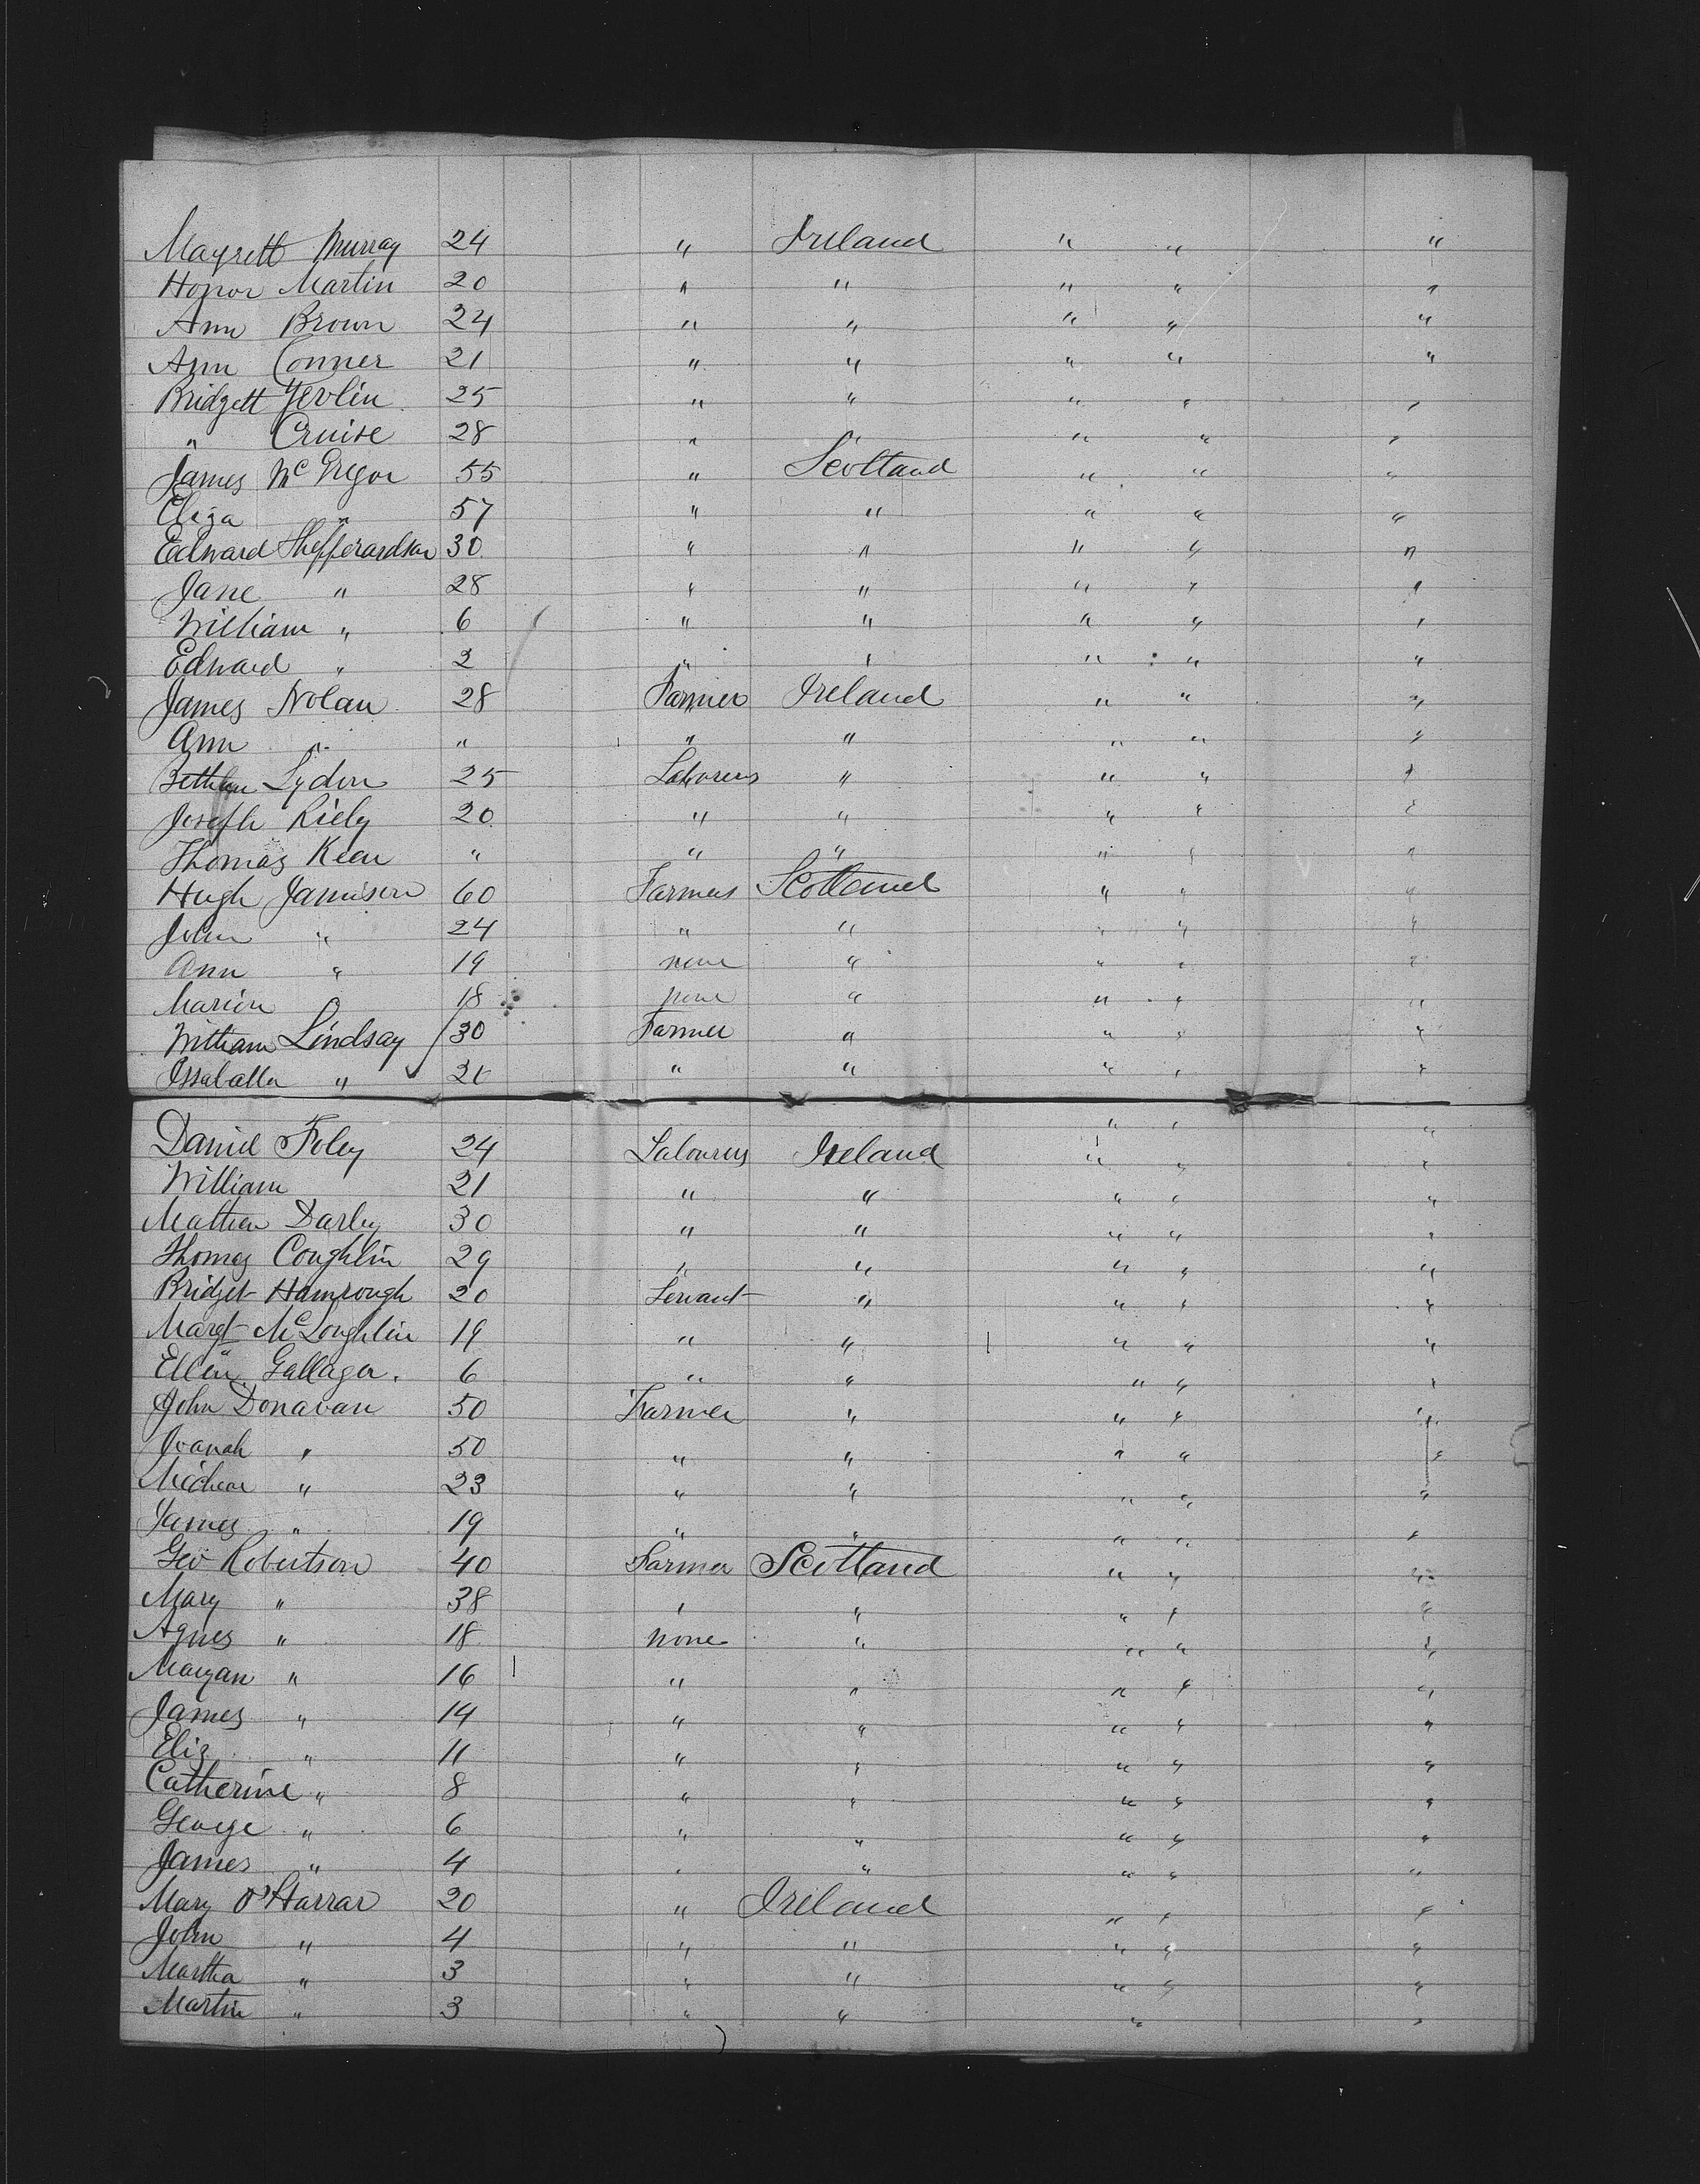 Magrett Murray 24 " Ireland " " "
Honor Martin 20 " " " " "
Ann Brown 24 " " " " "
Ann Conner 21 " " " " "
Bridgett 25 " " " " "
" Cruise 28 " " " " "
James McGregor 55 " Scotland " " "
Eliza " 57 " " " " "
Edward Shepperardson 30 " " " " "
Jane " 28 " " " " "
William " 6 " " " " "
Edward " 2 " " " " "
James Nolan 28 Farmer Ireland " " "
Ann " " " " " " "
Lydon 25 Laborers " " " "
Joseph Riely 20 " " " " "
Thomas Keen " " " " " "
Hugh Jamison 60 Farmers Scotland " " "
John " 24 " " " " "
Ann " 19 none " " " "
Marion 18 none " " " "
William Lindsay 30 Farmer " " " "
Issabella " " " " " "
" " "
Daniel Foley 24 Labourers Ireland " " "
William 21 " " " " "
Mathew Darby 30 " " " " "
Thomas Coughlin 29 " " " " "
Bridget Hamrough 20 Servant " " " "
Margt McLoughlin 19 " " " " "
Ellen Gallager. 6 " " " " "
John Donavan 50 Farmer " " " "
Joanah " 50 " " " " "
Micheal " 23 " " " " "
James " 19 " " " " "
Geo Robertson 40 Farmer Scotland " " "
Mary " 38 " " " " "
Agnes " 18 none " " " "
Margan " 16 " " " " "
James " 14 " " " " "
Eliz " 11 " " " " "
Catherine " 8 " " " " "
George " 6 " " " " "
James " 4 " " " " "
Mary O'Harrar 20 " Ireland " " "
John " 4 " " " " "
Martha " 3 " " " " "
Martin " 3 " " " "